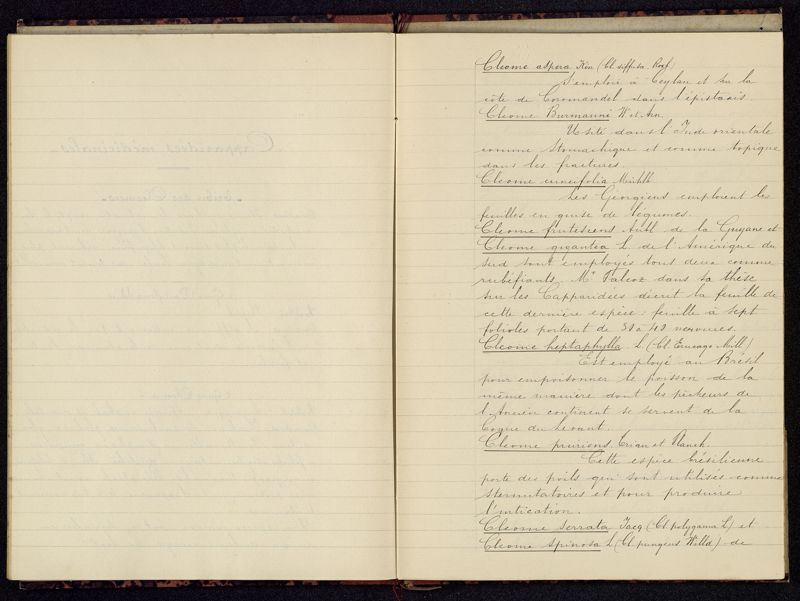 Cleome aspera Kön (Cl. diffusa. Roxf)
S'emploie à Ceylan et sur la
côte de Coromandel dans l'épistaxis.
Cleome Burmanni W et Arn.
Usité dans l'Inde orientale
comme stomachique et comme topique
dans les fractures.
Cleome cuneifolia
Les Géorgiens emploient les
feuilles en guise de légumes.
Cleome frutescens Aubl. de la Guyane et
Cleome gigantea L. de l'Amérique du
sud sont employés tous deux comme
rubéfiants. Mr dans sa thèse
sur les Capparidées décrit la feuille de
cette dernière espèce : feuille à sept
folioles portant de 30 à 40 nervures.
Cleome heptaphylla L. (Cl. Mill)
Est employé au Brésil
pour empoisonner le poisson de la
même manière dont les pêcheurs de
l'Ancien continent se servent de la
Coque du Levant.
Cleome pruriens. Trian et Planch.
Cette espèce brésilienne
porte des poils qui sont utilisés comme
sternutatoires et pour produire
l'urtication.
Cleome serrata Jacq (Cl. polygama L) et
Cleome spinosa L (Cl. pungens Willd) de